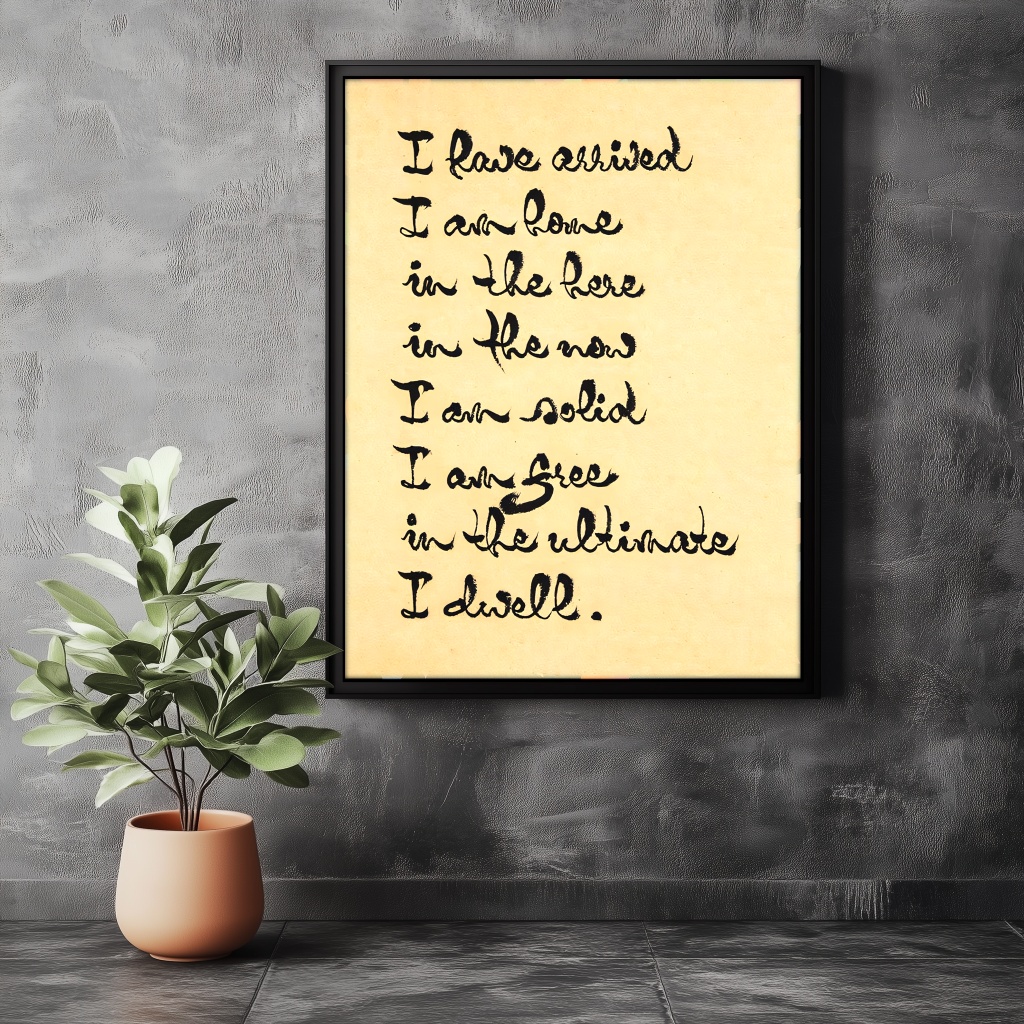 I have arrived
I am home
in the here
in the now
I am solid
I am free
in the ultimate
I dwell.